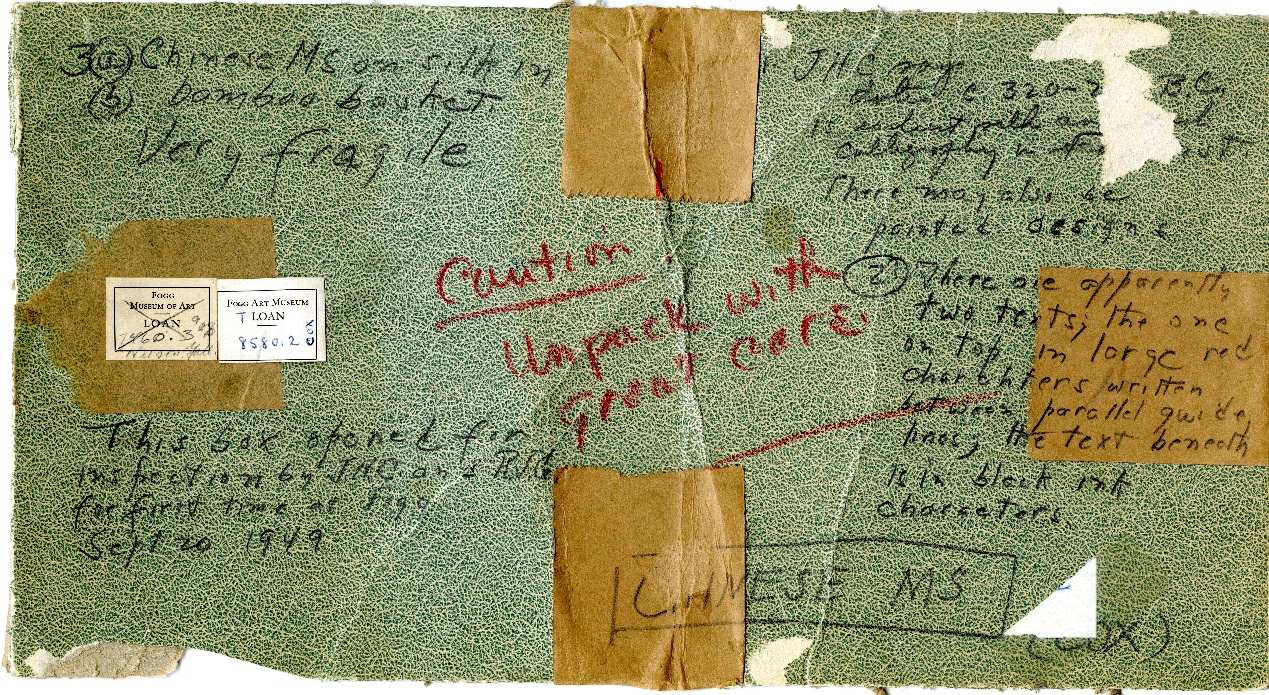 3 (a) Chinese MS on silk in
(b) bamboo basket
Very fragile
FOGG
MUSEUM OF ART
LOAN
1960.3
FOGG ART MUSEUM
T LOAN
8580.2
COX
This box opened for
inspection by JHC and
for first time at Fogg
Sept 20 1949
Caution.
Unpack with
great care
JHC says
date c 320- B.C.
calligraphy in
There may also be
painted designs
(2) There are apparently
two texts; the one
on top in large red
charahters written
between parallel guide
lines; the text beneath
is in black ink
characters.
CHINESE MS
(COX)